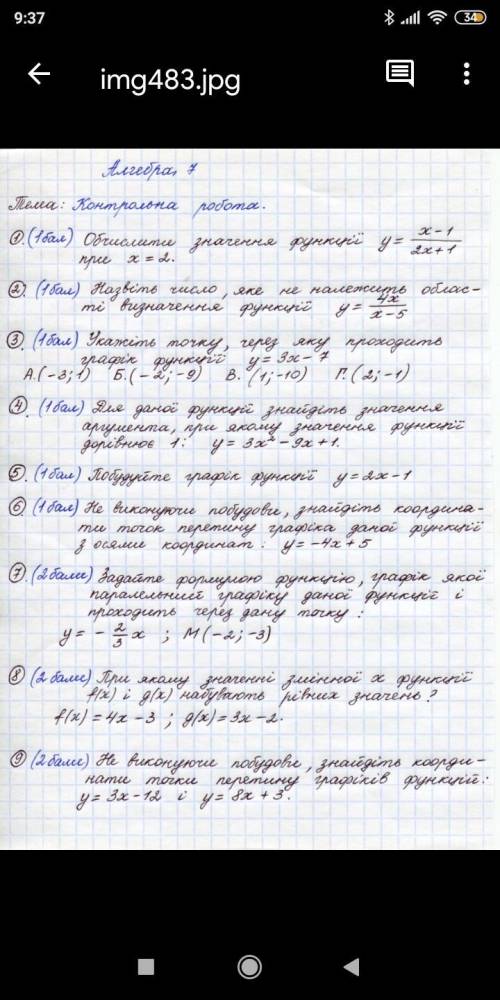 9:37
34
img483.jpg
Алгебра, 7
Тема: Контрольна робота.
① (1 бал) Обчислити значення функції y = (x-1)/(2x+1)
при x = 2.
② (1 бал) Назвіть число, яке не належить облас-
ті визначення функції y = 4x/(x-5)
③ (1 бал) Укажіть точку, через яку проходить
графік функції y = 3x - 7
А. (-3; 1) Б. (-2; -9) В. (1; -10) Г. (2; -1)
④ (1 бал) Для даної функції знайдіть значення
аргумента, при якому значення функції
дорівнює 1: y = 3x² - 9x + 1.
⑤ (1 бал) Побудуйте графік функції y = 2x - 1
⑥ (1 бал) Не виконуючи побудови, знайдіть координа-
ти точок перетину графіка даної функції
з осями координат: y = -4x + 5
⑦ (2 бали) Задайте формулою функцію, графік якої
паралельний графіку даної функції і
проходить через дану точку:
y = - 2/3 x ; M (-2; -3)
⑧ (2 бали) При якому значенні змінної x функції
f(x) і g(x) набувають рівних значень?
f(x) = 4x - 3 ; g(x) = 3x - 2.
⑨ (2 бали) Не виконуючи побудови, знайдіть коорди-
нати точки перетину графіків функцій:
y = 3x - 12 і y = 8x + 3.